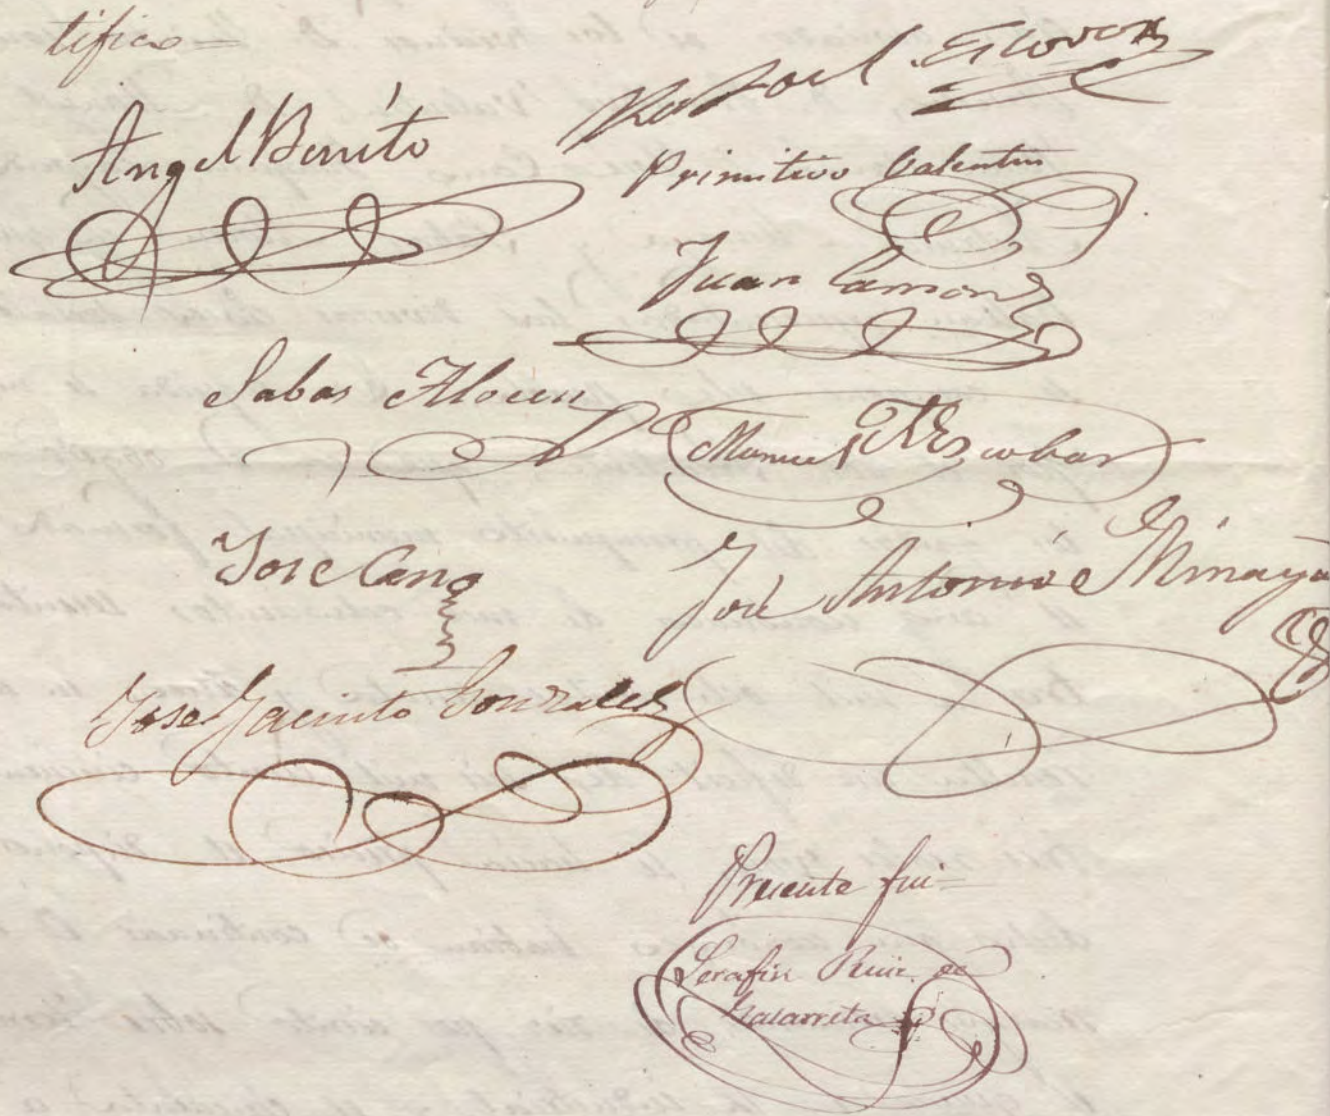 tifico=
Angel Benito
Rafael
Primitivo Valentin
Juan
Sabas
Manuel Escobar
Jose Cano
José Antonio Minaya
Jose Jacinto Gonzalez
Presente fui=
Serafin Ruiz de
Galarreta